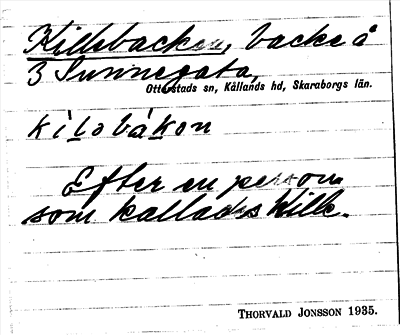 Killebacken, backe å
3 Sunnegata,
Otterstads sn, Kållands hd, Skaraborgs län.
kìlobákon
Efter en person
som kallades Kille.
THORVALD JONSSON 1935.